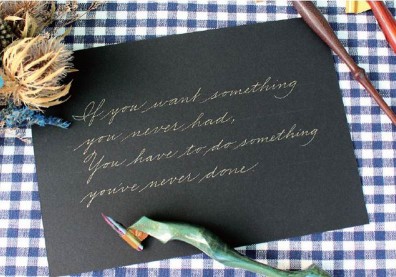 If you want something
you never had,
You have to do something
you've never done